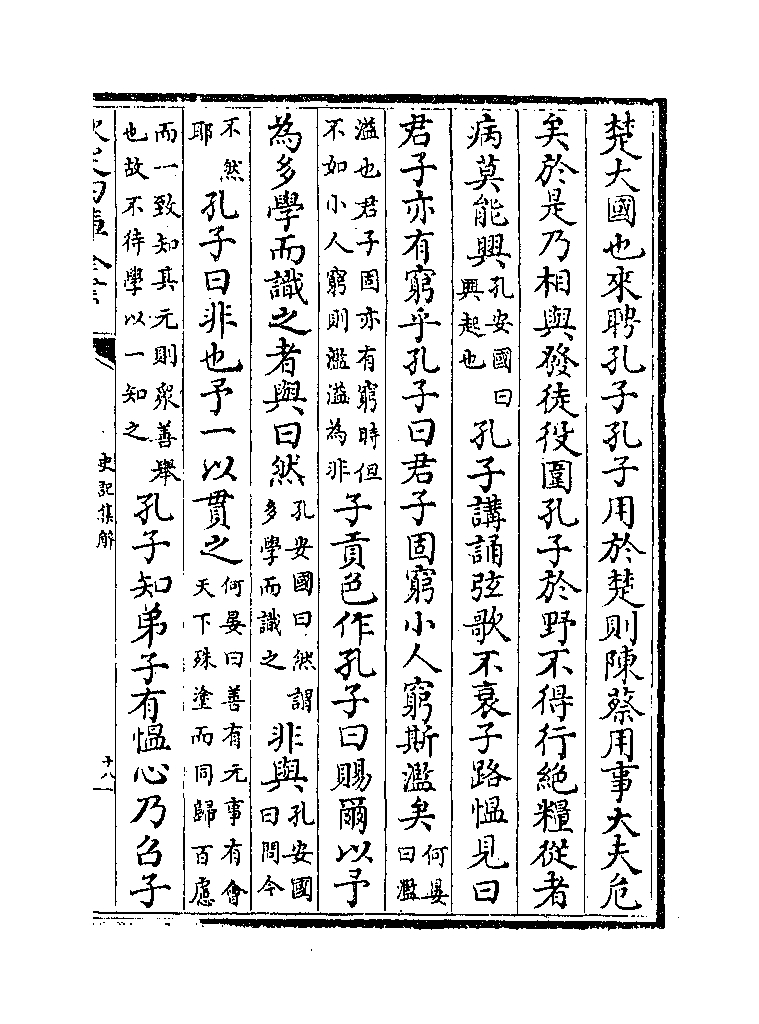 楚大國也來聘孔子孔子用於楚則陳蔡用事大夫危
矣於是乃相與發徒役圍孔子於野不得行絕糧從者
病莫能興孔安國曰興起也孔子講誦弦歌不衰子路慍見曰
君子亦有窮乎孔子曰君子固窮小人窮斯濫矣何晏曰濫
溢也君子固亦有窮時但不如小人窮則濫溢為非子貢色作孔子曰賜爾以予
為多學而識之者與曰然孔安國曰然謂多學而識之非與孔安國曰問今
不然耶孔子曰非也予一以貫之何晏曰善有元事有會天下殊塗而同歸百慮
而一致知其元則衆善舉也故不待學以一知之孔子知弟子有慍心乃召子
史記集解
十八